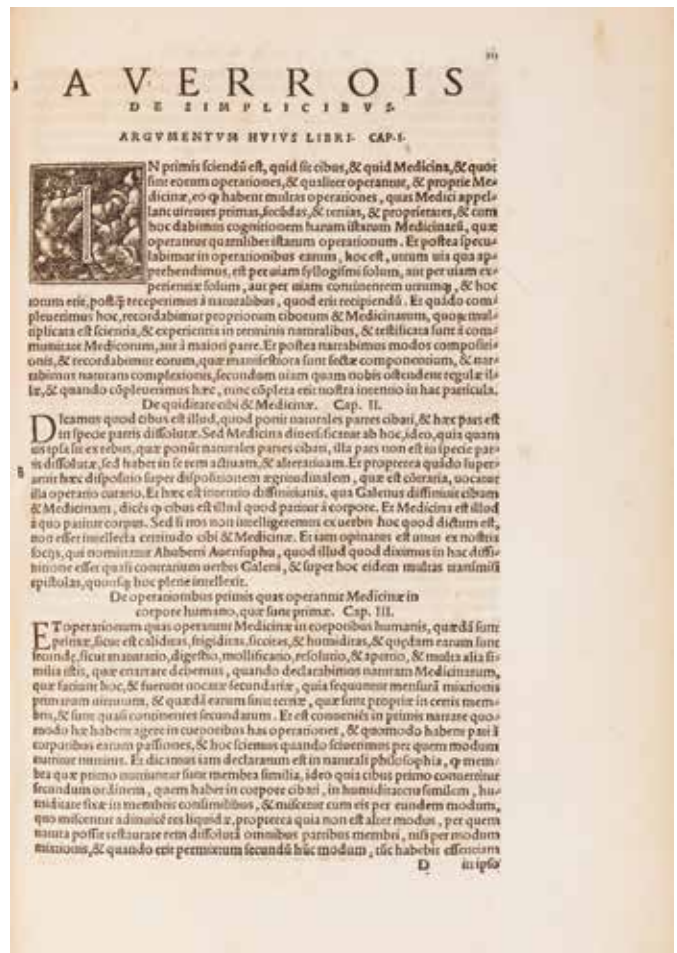 AVERROIS
DE SIMPLICIBVS.
ARGVMENTVM HVIVS LIBRI. CAP. I.
IN primis sciendũ est, quid sit cibus, & quid Medicina, & quot
sint eorum operationes, & qualiter operantur, & proprie Me-
dicinæ, eo ꝙ habent multas operationes, quas Medici appel-
lant uirtutes primas, secũdas, & tertias, & proprietates, & cum
hoc dabimus cognitionem harum istarum Medicinarũ, quæ
operantur quamlibet istarum operationum. Et postea specu-
labimur in operationibus earum, hoc est, utrum uia qua ap-
prehendimus, est per uiam syllogismi solum, aut per uiam ex-
perientiæ solum, aut per uiam continentem utrunqȝ, & hoc
totum erit, postq̃ receperimus à naturalibus, quod erit recipiendũ. Et quãdo com-
pleuerimus hoc, recordabimur propriorum ciborum & Medicinarum, quorũ mul-
tiplicata est scientia, & experientia in terminis naturalibus, & testificata sunt à com-
munitate Medicorum, aut à maiori parte. Et postea narrabimus modos compositi-
onis, & recordabimur eorum, quæ manifestiora sunt sectæ componentium, & nar-
rabimus naturam complexionis, secundum uiam quam nobis ostendent regulæ il-
læ, & quando cõpleuerimus hæc, tunc cõpleta erit nostra intentio in hac particula.
De quiditate cibi & Medicinæ. Cap. II.
DIcamus quod cibus est illud, quod ponit naturales partes cibati, & hæc pars est
in specie partis dissolutæ. Sed Medicina diuersificatur ab hoc, ideo, quia quam
uis ipsa sit ex rebus, quæ ponũt naturales partes cibati, illa pars non est in specie par-
tis dissolutæ, sed habet in se rem actiuam, & alteratiuam. Et propterea quãdo super-
atur hæc dispositio super dispositionem ægritudinalem, quæ est cõtraria, uocatur
illa operatio curatio. Et hæc est intentio diffinitionis, qua Galenus diffiniuit cibum
& Medicinam, dicẽs ꝙ cibus est illud quod patitur à corpore. Et Medicina est illud
à quo patitur corpus. Sed si nos non intelligeremus ex uerbis hoc quod dictum est,
non esset intellecta certitudo cibi & Medicinæ. Et iam opinatus est unus ex nostris
socijs, qui nominatur Ahubeni Auensuphu, quod illud quod diximus in hac diffi-
nitione esset quasi contrarium uerbis Galeni, & super hoc eidem multas transmisi
epistolas, quousqȝ hoc plene intellexit.
De operationibus primis quas operantur Medicinæ in
corpore humano, quæ sunt primæ. Cap. III.
ET operationum quas operantur Medicinæ in corporibus humanis, quædã sunt
primæ, sicut est caliditas, frigiditas, siccitas, & humiditas, & quędam earum sunt
secundę, sicut maturatio, digestio, mollificatio, resolutio, & apertio, & multa alia si-
milia istis, quæ enarrare debemus, quando declarabimus naturam Medicinarum,
quæ faciunt hoc, & fuerunt uocatæ secundariæ, quia sequuntur mensurã mixtionis
primarum uirtutum, & quædã earum sunt tertiæ, quæ sunt propriæ in certis mem-
bris, & sunt quasi continentes secundarum. Et est conueniẽs in primis narrare quo-
modo hæ habent agere in corporibus has operationes, & quomodo habent pati à
corporibus earum passiones, & hoc sciemus quando sciuerimus per quem modum
nutritur nutriens. Et dicamus iam declaratum est in naturali philosophia, ꝙ mem-
bra quæ primo nutriuntur sunt membra similia, ideo quia cibus primo conuertitur
secundum ordinem, quem habet in corpore cibati, in humiditatem similem, hu-
miditate fixæ in membris consimilibus, & miscetur cum eis per eundem modum,
quo miscentur adinuicẽ res liquidæ, propterea quia non est alter modus, per quem
natura possit restaurare rem dissolutã omnibus partibus membri, nisi per modum
mixtionis, & quando erit permixtum secundũ hũc modum, tũc habebit essentiam
D in ipso